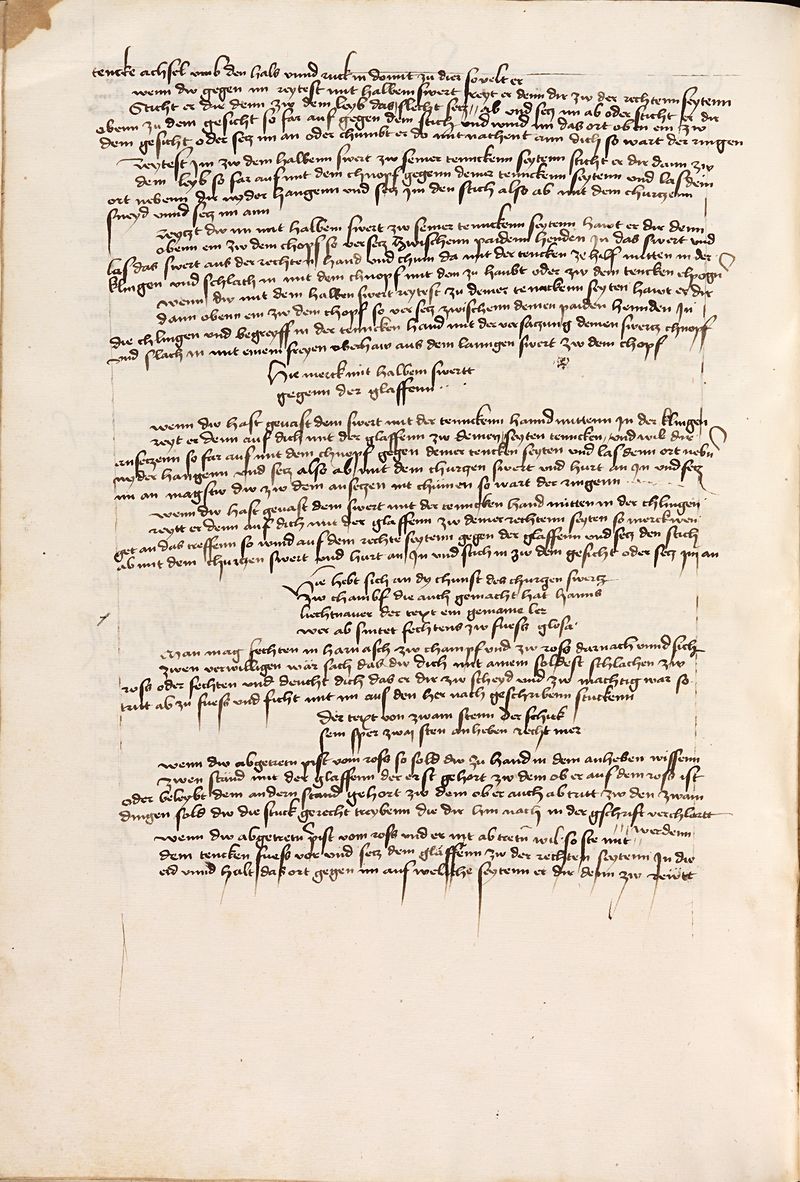 tencke achsel umb den hals unnd ruck in domit zu dier so velt er
wenn dw gegen im reytest mit halbem swert reyt er denn dir zw der rechtenn seytenn
Sticht er die denn zw dem leyb das slecht setz ab und setz im ab oder sticht er dir
obenn zu dem gesicht so far auf gegen dem stich und wind im das ort oben ein zw
dem gesicht oder setz im an oder chumbt er do mit nathent ann dich so wart der ringen
Reytest Im zw dem halbenn swert zw seiner tennckenn seytenn sticht er dir dann zw
dem leyb so far auf mit dem chnopf gegenn deiner tennckenn seytenn und las dein
ort nebenn Im nyder hangenn und setz im den stich also ab mit dem churtzenn
sneyd unnd setz im ann
Reytzt dw im mit halbem swert zw seiner tennckenn seytenn hawt er dir denn
obenn ein zw dem chopf so versetz Zwischenn paidenn henden In das swert und
las das swert aus der rechten hand und chum da mit der tencken ze hilf mitten in der
klingen und schlach in mit dem chnopf mit dem zu haubt oder zw dem tencken elpogn
wenn dw mit dem halben swert reytest zu deiner tennckenn seyten hawt er dir
dann obenn ein zw dem chopf so versetz zwischenn deinen paiden hennden In
die chlingen und begreyff in der tenncken hand mit der versatzung deinen swertz chnopf
und slach in mit einem freyen oberhaw aus dem lanngen swert zw dem chopf
Hie merck mit halbem swertt
gegenn der glaffenn
wenn dw hast gevast dem swert mit der tennckenn hannd mittenn In der klingen
reyt er denn auf dich mit der glaffenn zw deiner seyten tenncken und wil dir
ansetzenn so far auf mit dem chnopf gegen deiner tencken seyten und las denn ort nebn
nyder hangenn und setz also ab mit dem churtzen swert und hurt an In und setz
im an magstu dw zw dem ansetzen nit chümen so wart der ringenn
wenn dw hast gevast dem swert mit der tenncken hand mitten in der chlingen
reytt er denn auf dich mit der glaffenn zw deiner rechtenn seyten so merck wen
get an das treffenn so wind auf dem rechte seytenn gegen der glaffenn und setz den stich
ab mit dem churtzen swert und hurt an In und stich in zw dem gesicht oder setz im an
Hie hebt sich an dy chunst des churtzen swertz
Zw champf die auch gemacht hat hanns
liechtnawer der text ein gemaine ler
wer ab sintet fechtens zw fuess glosa
Man mag fechten in harnasch zw champf und zw ross darnach unnd sich
zwen verwilligen wär sach das dw dich mit ainem soldest schlachen zw
ross oder fechten und deucht dich das er dir zw scheyd und zw mächtig war so
trit ab zu fuess und ficht mit im auf den her nach geschribenn stuckenn
der text von zwain stenn der schick
sein sper zwai sten anheben recht mer
wenn dw abgetretn pist vom ross so sold dw zu hand in dem anheben wissenn
zwen stännd mit der glaffenn der erst gehort zw dem ob er auf dem ross ist
oder beleybt dem andern stand gehort zw dem ob er auch ab tritt zw den zwain
dingen sold dw die stuck gerecht treybenn die dir hin nach in der gschrift verchlärtt
werdenn
wenn dw abgetretn pist vom ross und er nit ab tretn wil so ste mit
dem tencken fuess vor und setz dem glaffenn zw der rechten seytenn In die
erd unnd halt das ort gegen im auf welche seytenn er dir denn zw reytt